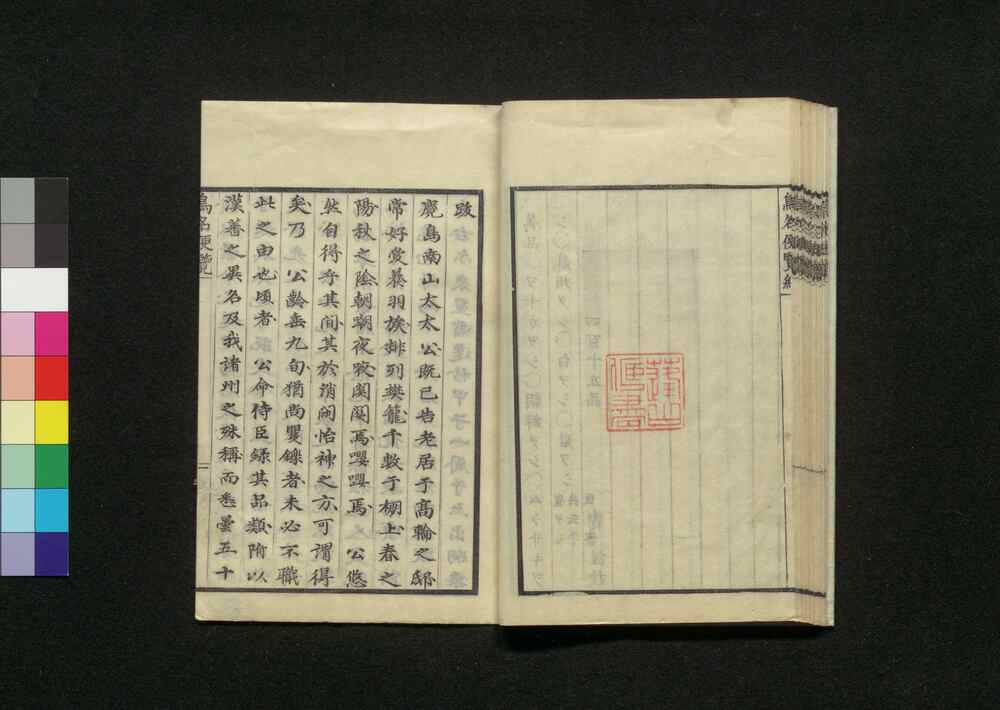 鳥名便覧終
跋
麑島南山太太公既已告老居于高輪之邸
常好愛養羽族排列樊籠千数于棚上春之
陽秋之陰朝朝夜夜関関焉嚶嚶焉 公悠
然自得乎其間其於消閑怡神之方可謂得
矣乃 公齢垂九旬猶尚矍鑠者未必不職
此之由也頃者 公命侍臣録其品類附以
漢蕃之異名及我諸州之殊称而悉曇五十
鳥名便覧